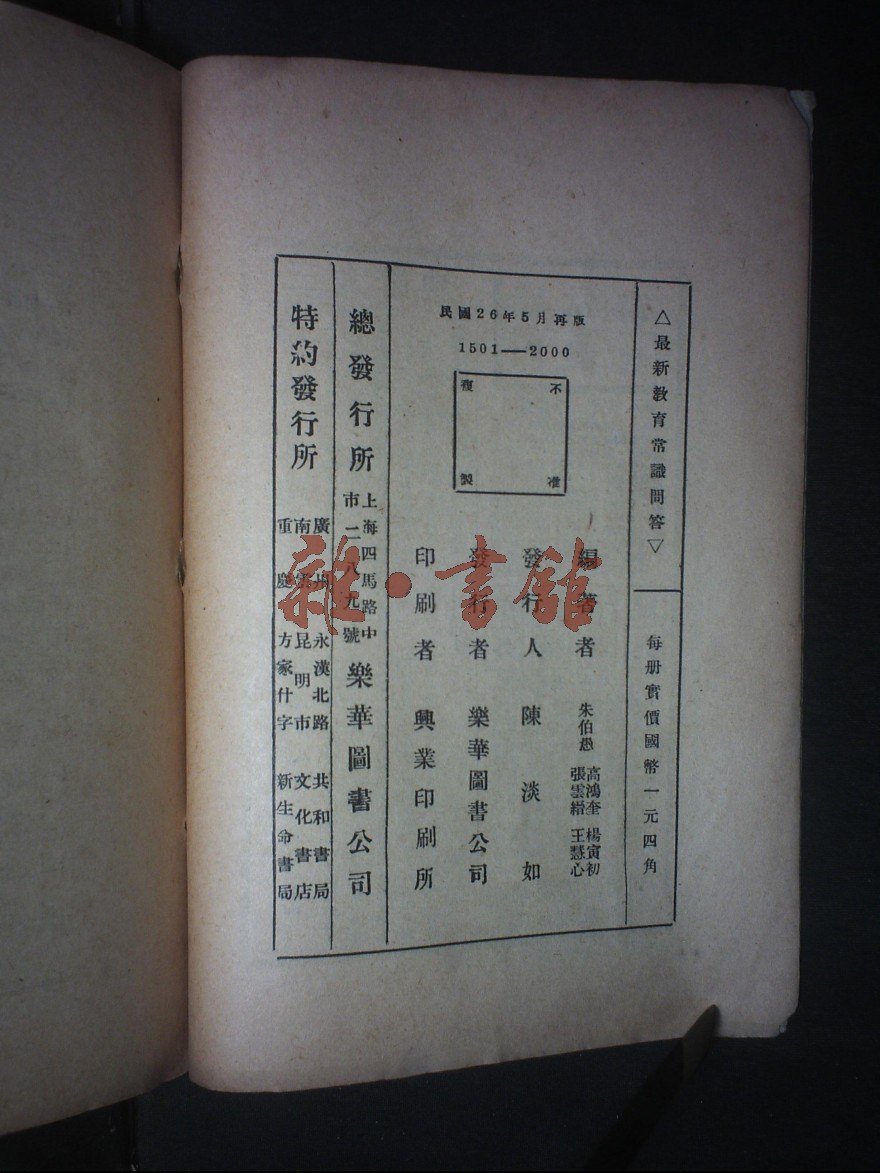 △最新教育常識問答▽
每册實價國幣一元四角
民國26年5月再版
1501——2000
不准
複製
編著者 朱伯愚
高鴻奎 楊寅初
張雲縉 王慧心
發行人 陳淡如
發行者 樂華圖書公司
印刷者 興業印刷所
總發行所
上海四馬路中
市二八九號
樂華圖書公司
特約發行所
廣州 永漢北路 共和書局
雲南 昆明市 文化書店
重慶 方家什字 新生命書局
雜·書館